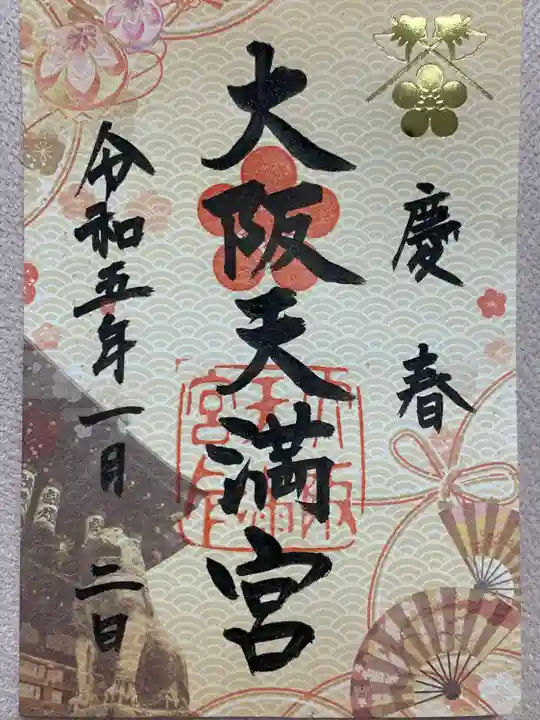 慶春
大阪天満宮
令和五年一月二日